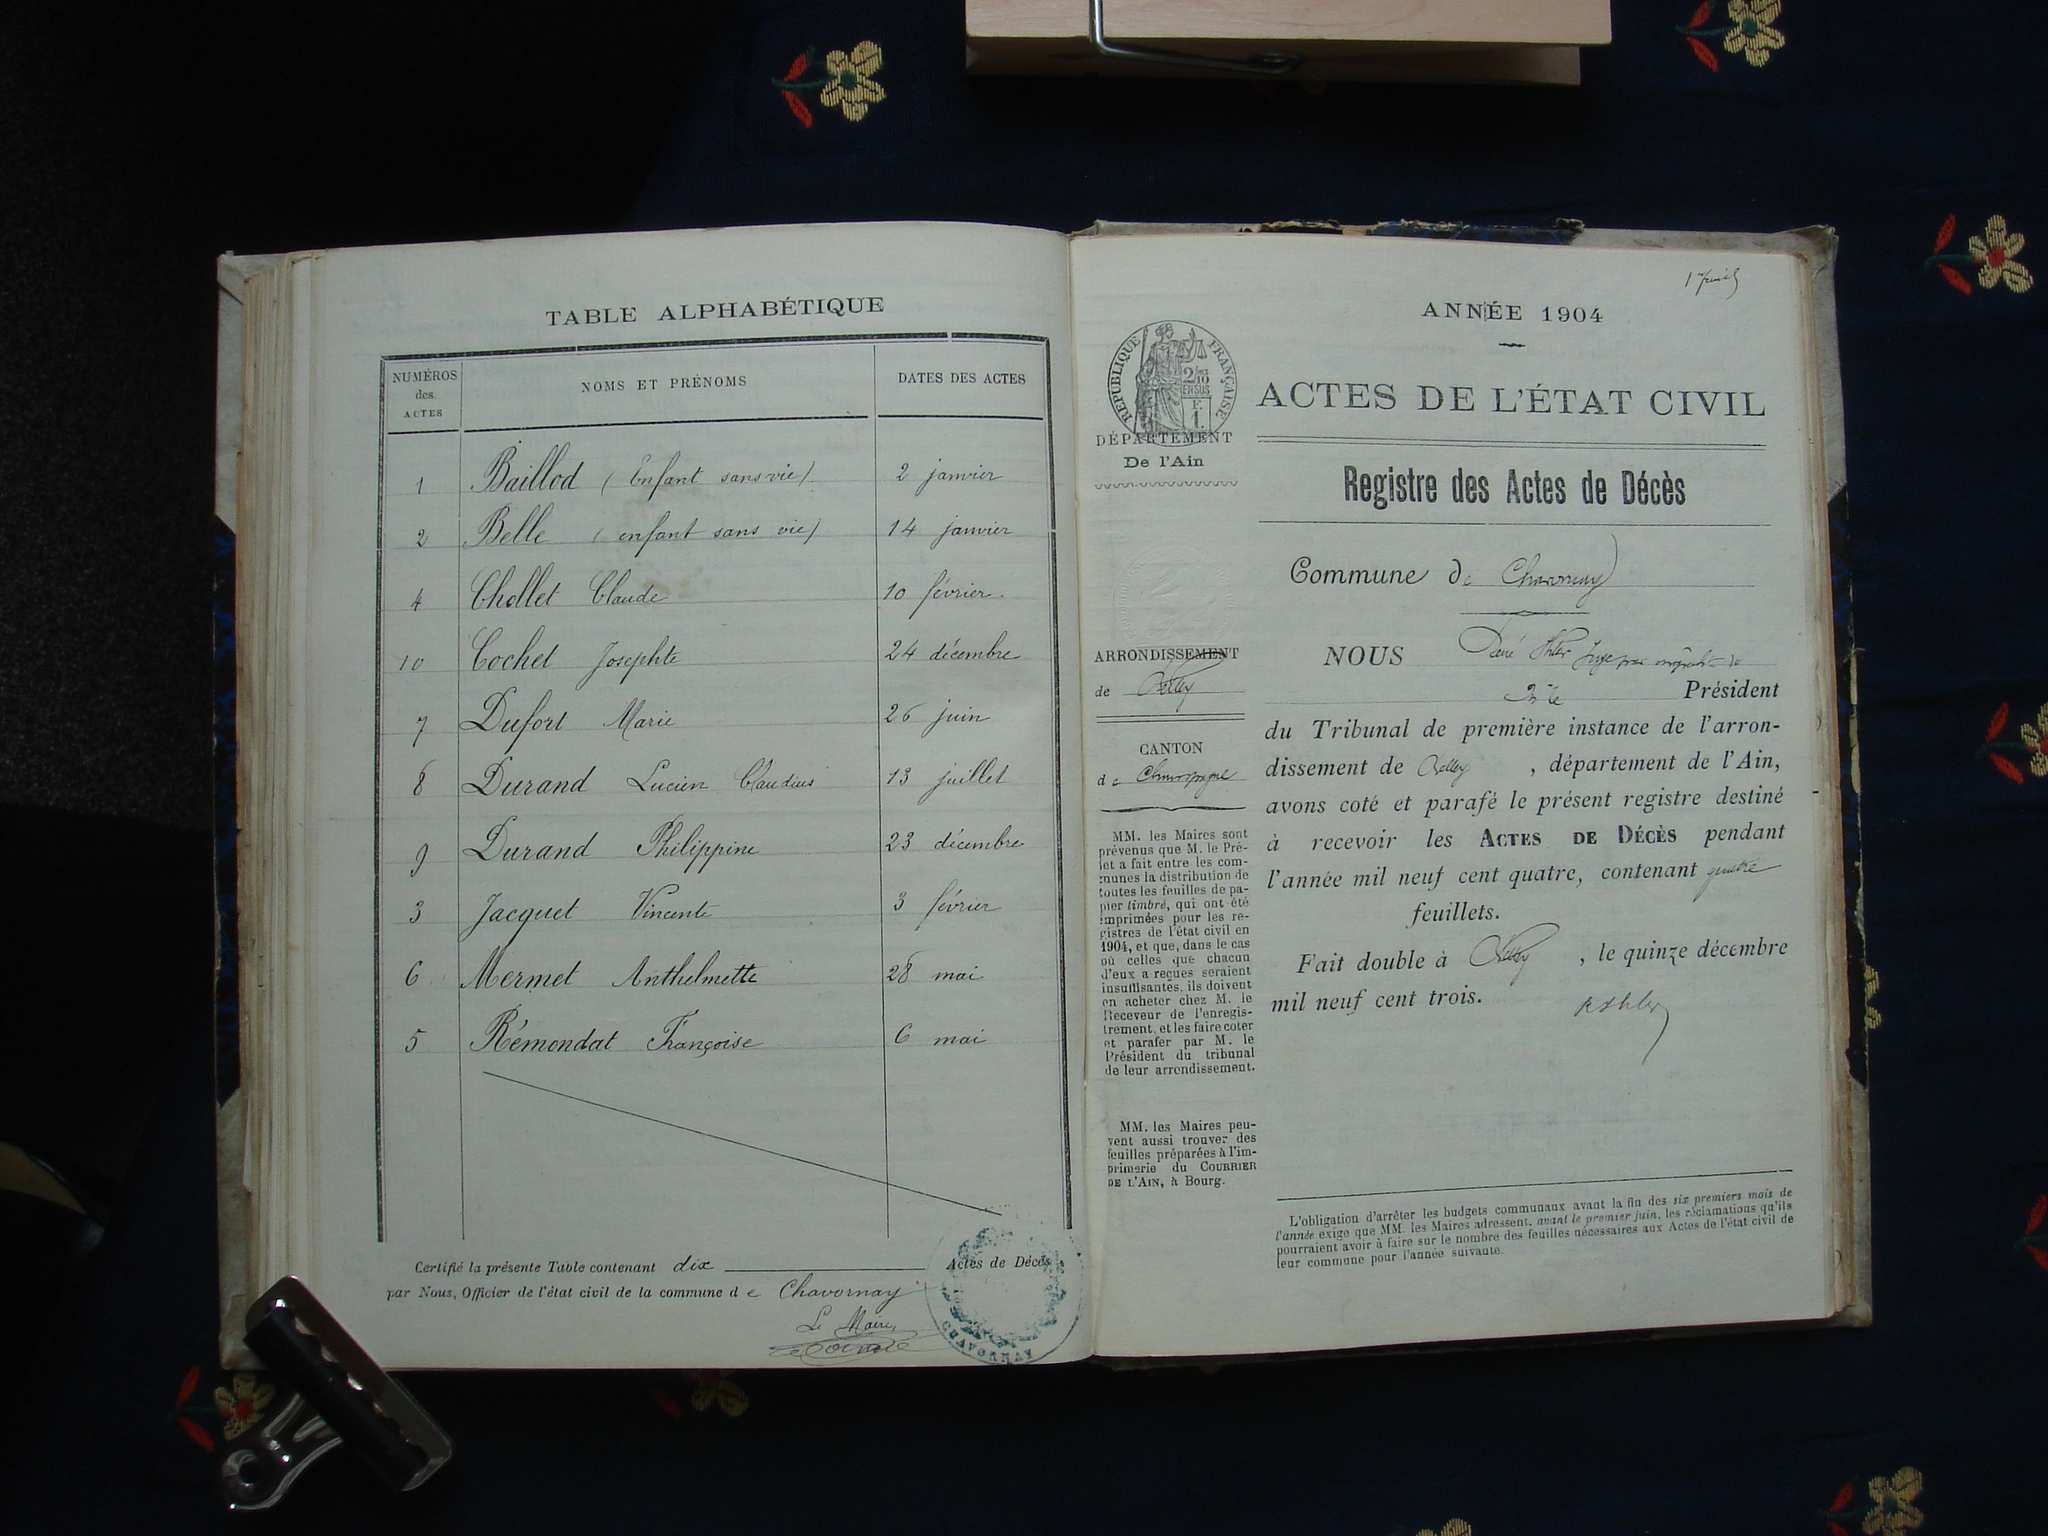 TABLE ALPHABÉTIQUE
NUMÉROS des ACTES NOMS ET PRÉNOMS DATES DES ACTES
1 Baillod (Enfant sans vie) 2 janvier
2 Belle (enfant sans vie) 14 janvier
4 Chollet Claude 10 février.
10 Cochet Josephte 24 décembre
7 Dufort Marie 26 juin
8 Durand Lucien Claudius 13 juillet
9 Durand Philippine 23 décembre
3 Jacquet Vincente 3 février
6 Mermet Anthelmette 28 mai
5 Rémondat Françoise 6 mai
Certifié la présente Table contenant dix Actes de Décès
par Nous, Officier de l'état civil de la commune de Chavornay
Le Maire,
CHAVORNAY
ANNÉE 1904
RÉPUBLIQUE FRANÇAISE
2/10
EN SUS
F.
1.
DÉPARTEMENT
De l'Ain
ARRONDISSEMENT
de Belley
CANTON
de Champagne
MM. les Maires sont
prévenus que M. le Pré-
fet a fait entre les com-
munes la distribution de
toutes les feuilles de pa-
pier timbré, qui ont été
imprimées pour les re-
gistres de l'état civil en
1904, et que, dans le cas
où celles que chacun
d'eux a reçues seraient
insuffisantes, ils doivent
en acheter chez M. le
Receveur de l'enregis-
trement, et les faire coter
et parafer par M. le
Président du tribunal
de leur arrondissement.
MM. les Maires peu-
vent aussi trouver des
feuilles préparées à l'im-
primerie du COURRIER
DE L'AIN, à Bourg.
ACTES DE L'ÉTAT CIVIL
Registre des Actes de Décès
Commune de Chavornay
NOUS
Président
du Tribunal de première instance de l'arron-
dissement de Belley, département de l'Ain,
avons coté et parafé le présent registre destiné
à recevoir les ACTES DE DÉCÈS pendant
l'année mil neuf cent quatre, contenant quatre
feuillets.
Fait double à Belley, le quinze décembre
mil neuf cent trois.
L'obligation d'arrêter les budgets communaux avant la fin des six premiers mois de
l'année exige que MM. les Maires adressent, avant le premier juin, les réclamations qu'ils
pourraient avoir à faire sur le nombre des feuilles nécessaires aux Actes de l'état civil de
leur commune pour l'année suivante.